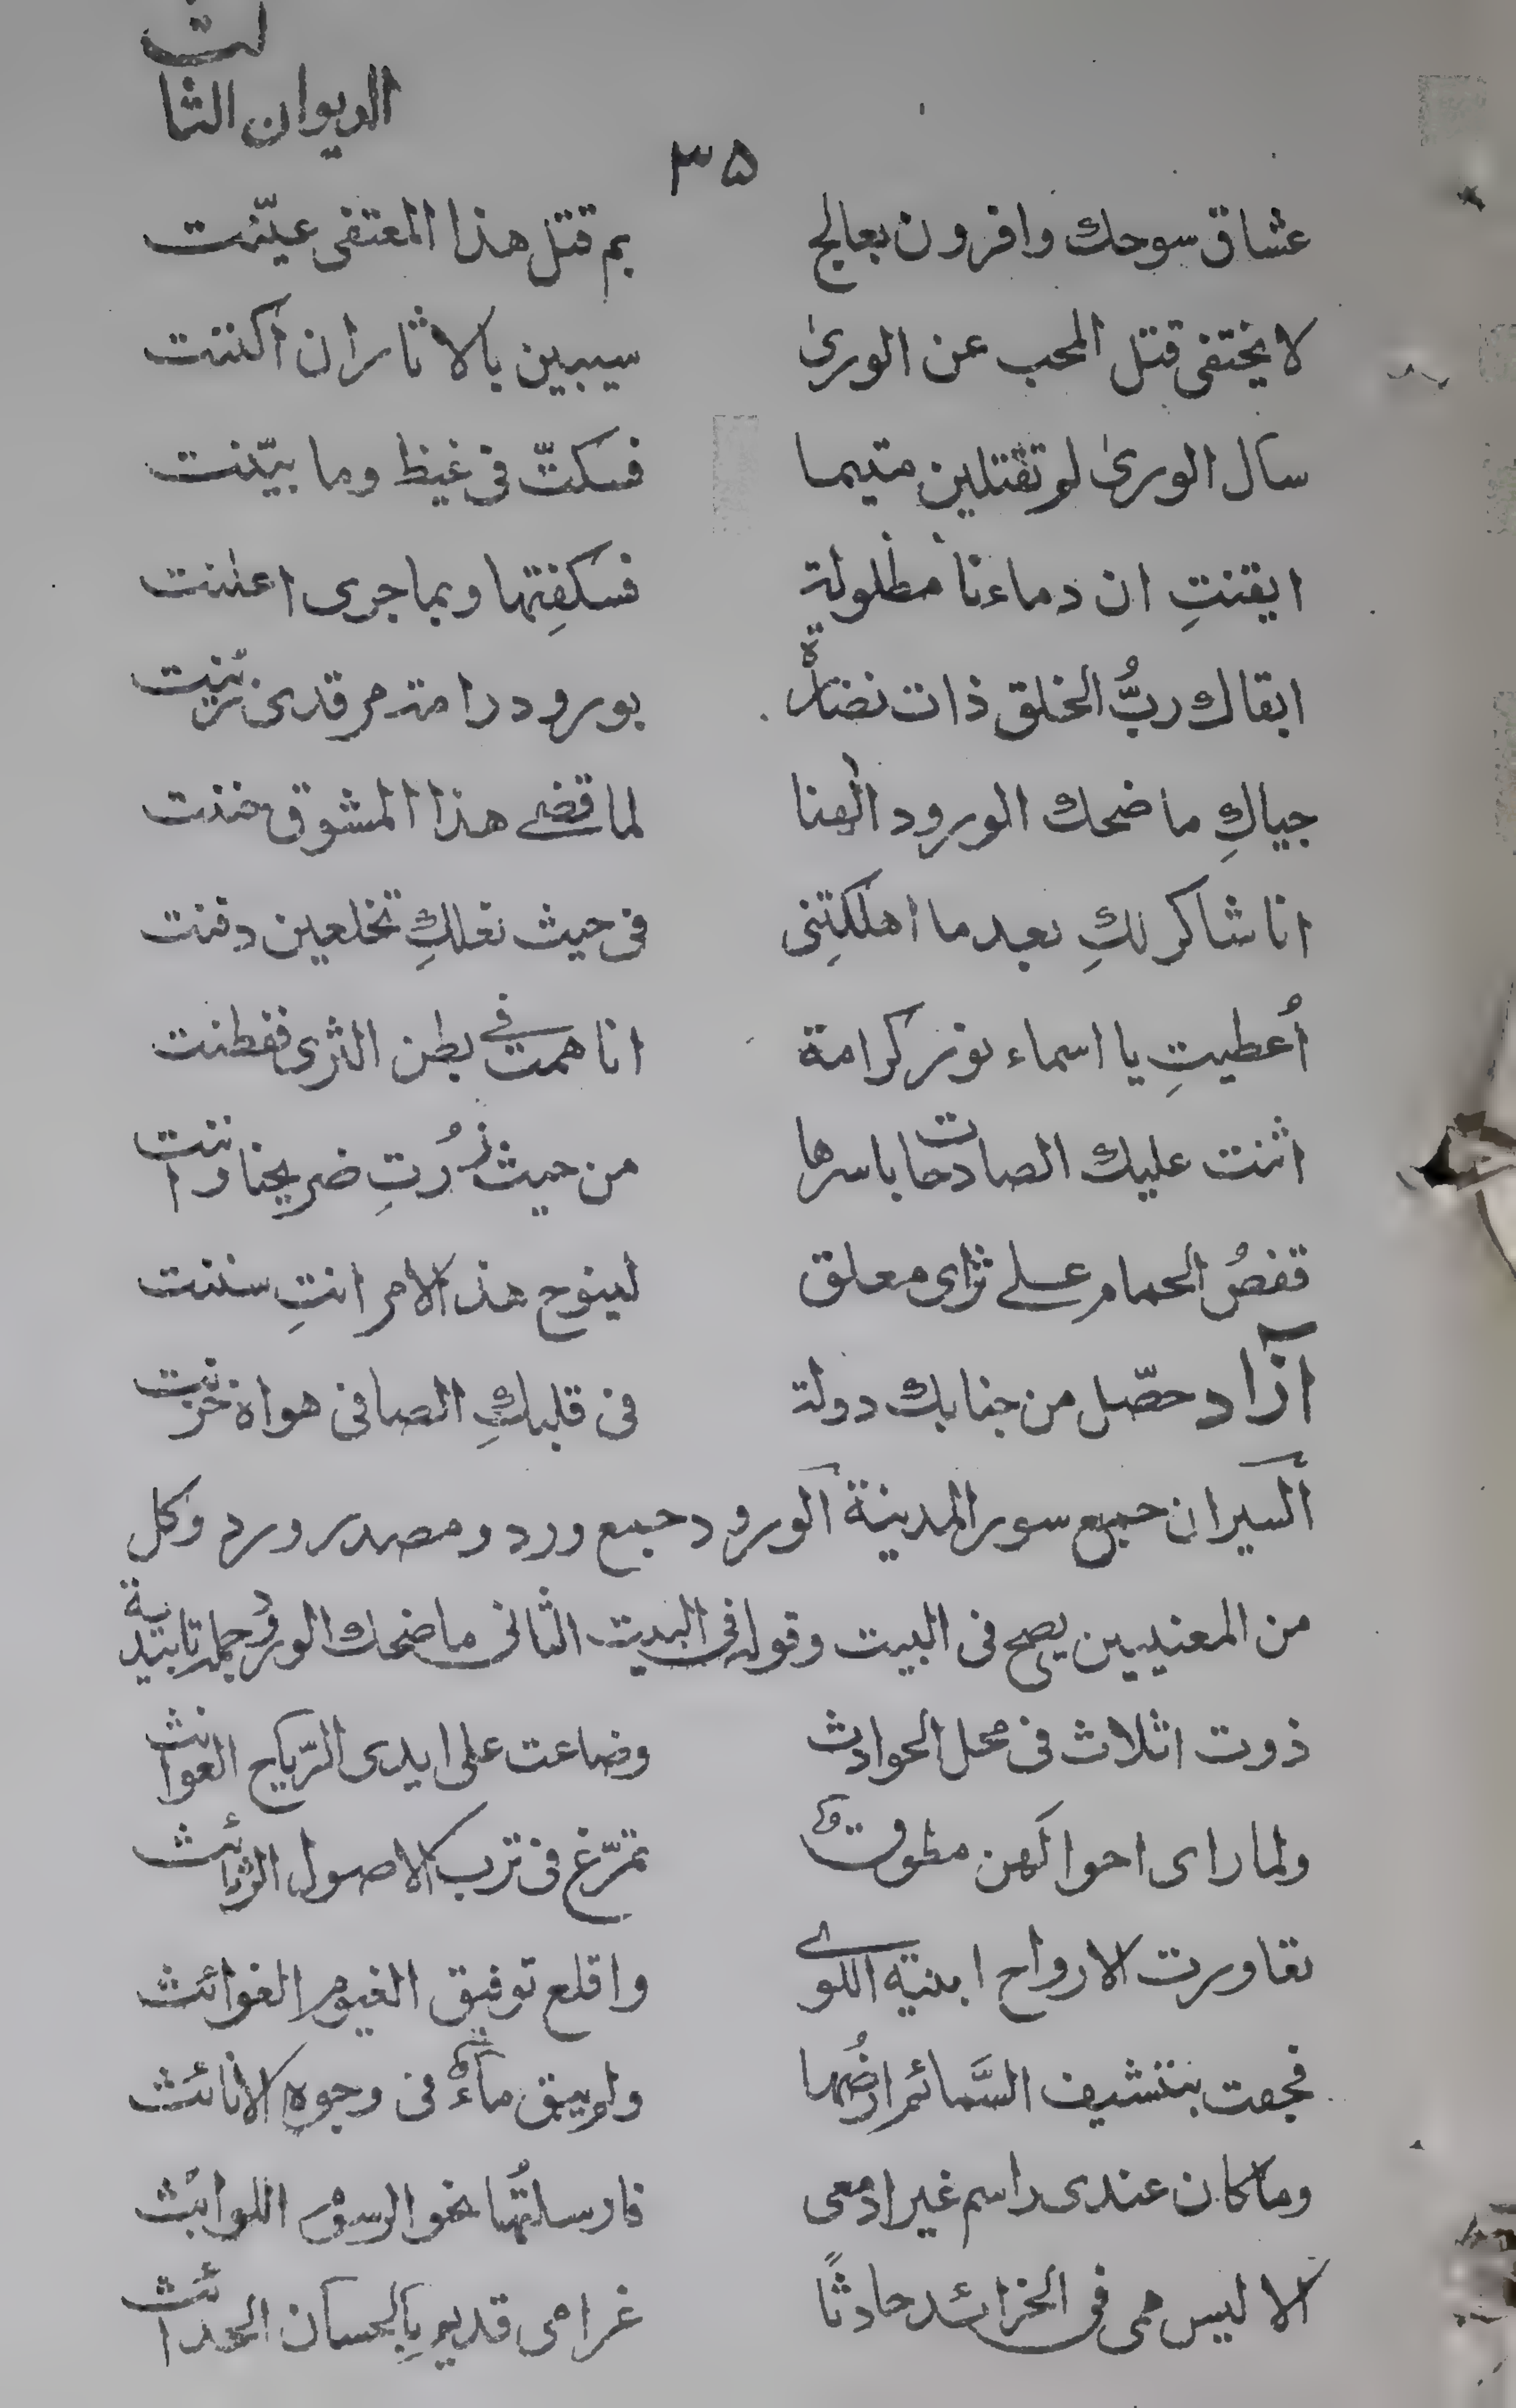 الديوان الثالث
٣٥
عشاق سوحك وافرون بعالج بم قتل هذا المعتفى عيّنت
لا يختفى قتل المحب عن الورىٰ سيبين بالاثاران اكننت
سال الورىٰ لو تقتلين متيما فسكتّ فى غيظ وما بيّنت
ايقنتِ ان دماءنا مطلولة فسكفتِها وبما جرى اعلنت
ابقاك ربُّ الخلق ذات نضارة بورود رامة مرقدى زينت
حياكِ ما ضحك الورود الهنا لما قضى هذا المشوق حننت
انا شاكر لكِ بعد ما اهلكتِنى فى حيث نعلكِ تخلعين دفنت
أُعطيتِ يا اسماء نور كرامة انا همت فى بطن الثرى ففطنت
اثنت عليك الصادحات باسرها من حيث زُرتِ ضريحنا و
قفصُ الحمام على ثراى معلق لينوح هذ الامر انتِ سننت
آزاد حصّل من جنابك دولة فى قلبكِ الصافى هواه خزنت
السيران جمع سور المدينة الورود جمع ورد ومصدر ورد وكل
من المعنيين يصح فى البيت وقوله فى البيت الثانى ما ضحك الورود جملة تابيدية
ذوت اثلاث فى محل الحوادث وضاعت على ايدى الرّياح العوائث
ولما راى احوالهن مطوق تمرّغ فى ترب الاصول الرثائث
تعاورت الارواح ابنية اللوى واقلع توفيق الغيوم الغوائث
فجعت بتنشيف السَّمائم ارضُها ولم يبق ماءٌ فى وجوه الانائث
وما كان عندى راسم غير ادمعى فارسلتُها نحو الرسوم اللوائث
الا ليس همى فى الخرائد حادثًا غرامى قديم بِالحسان الحدائث